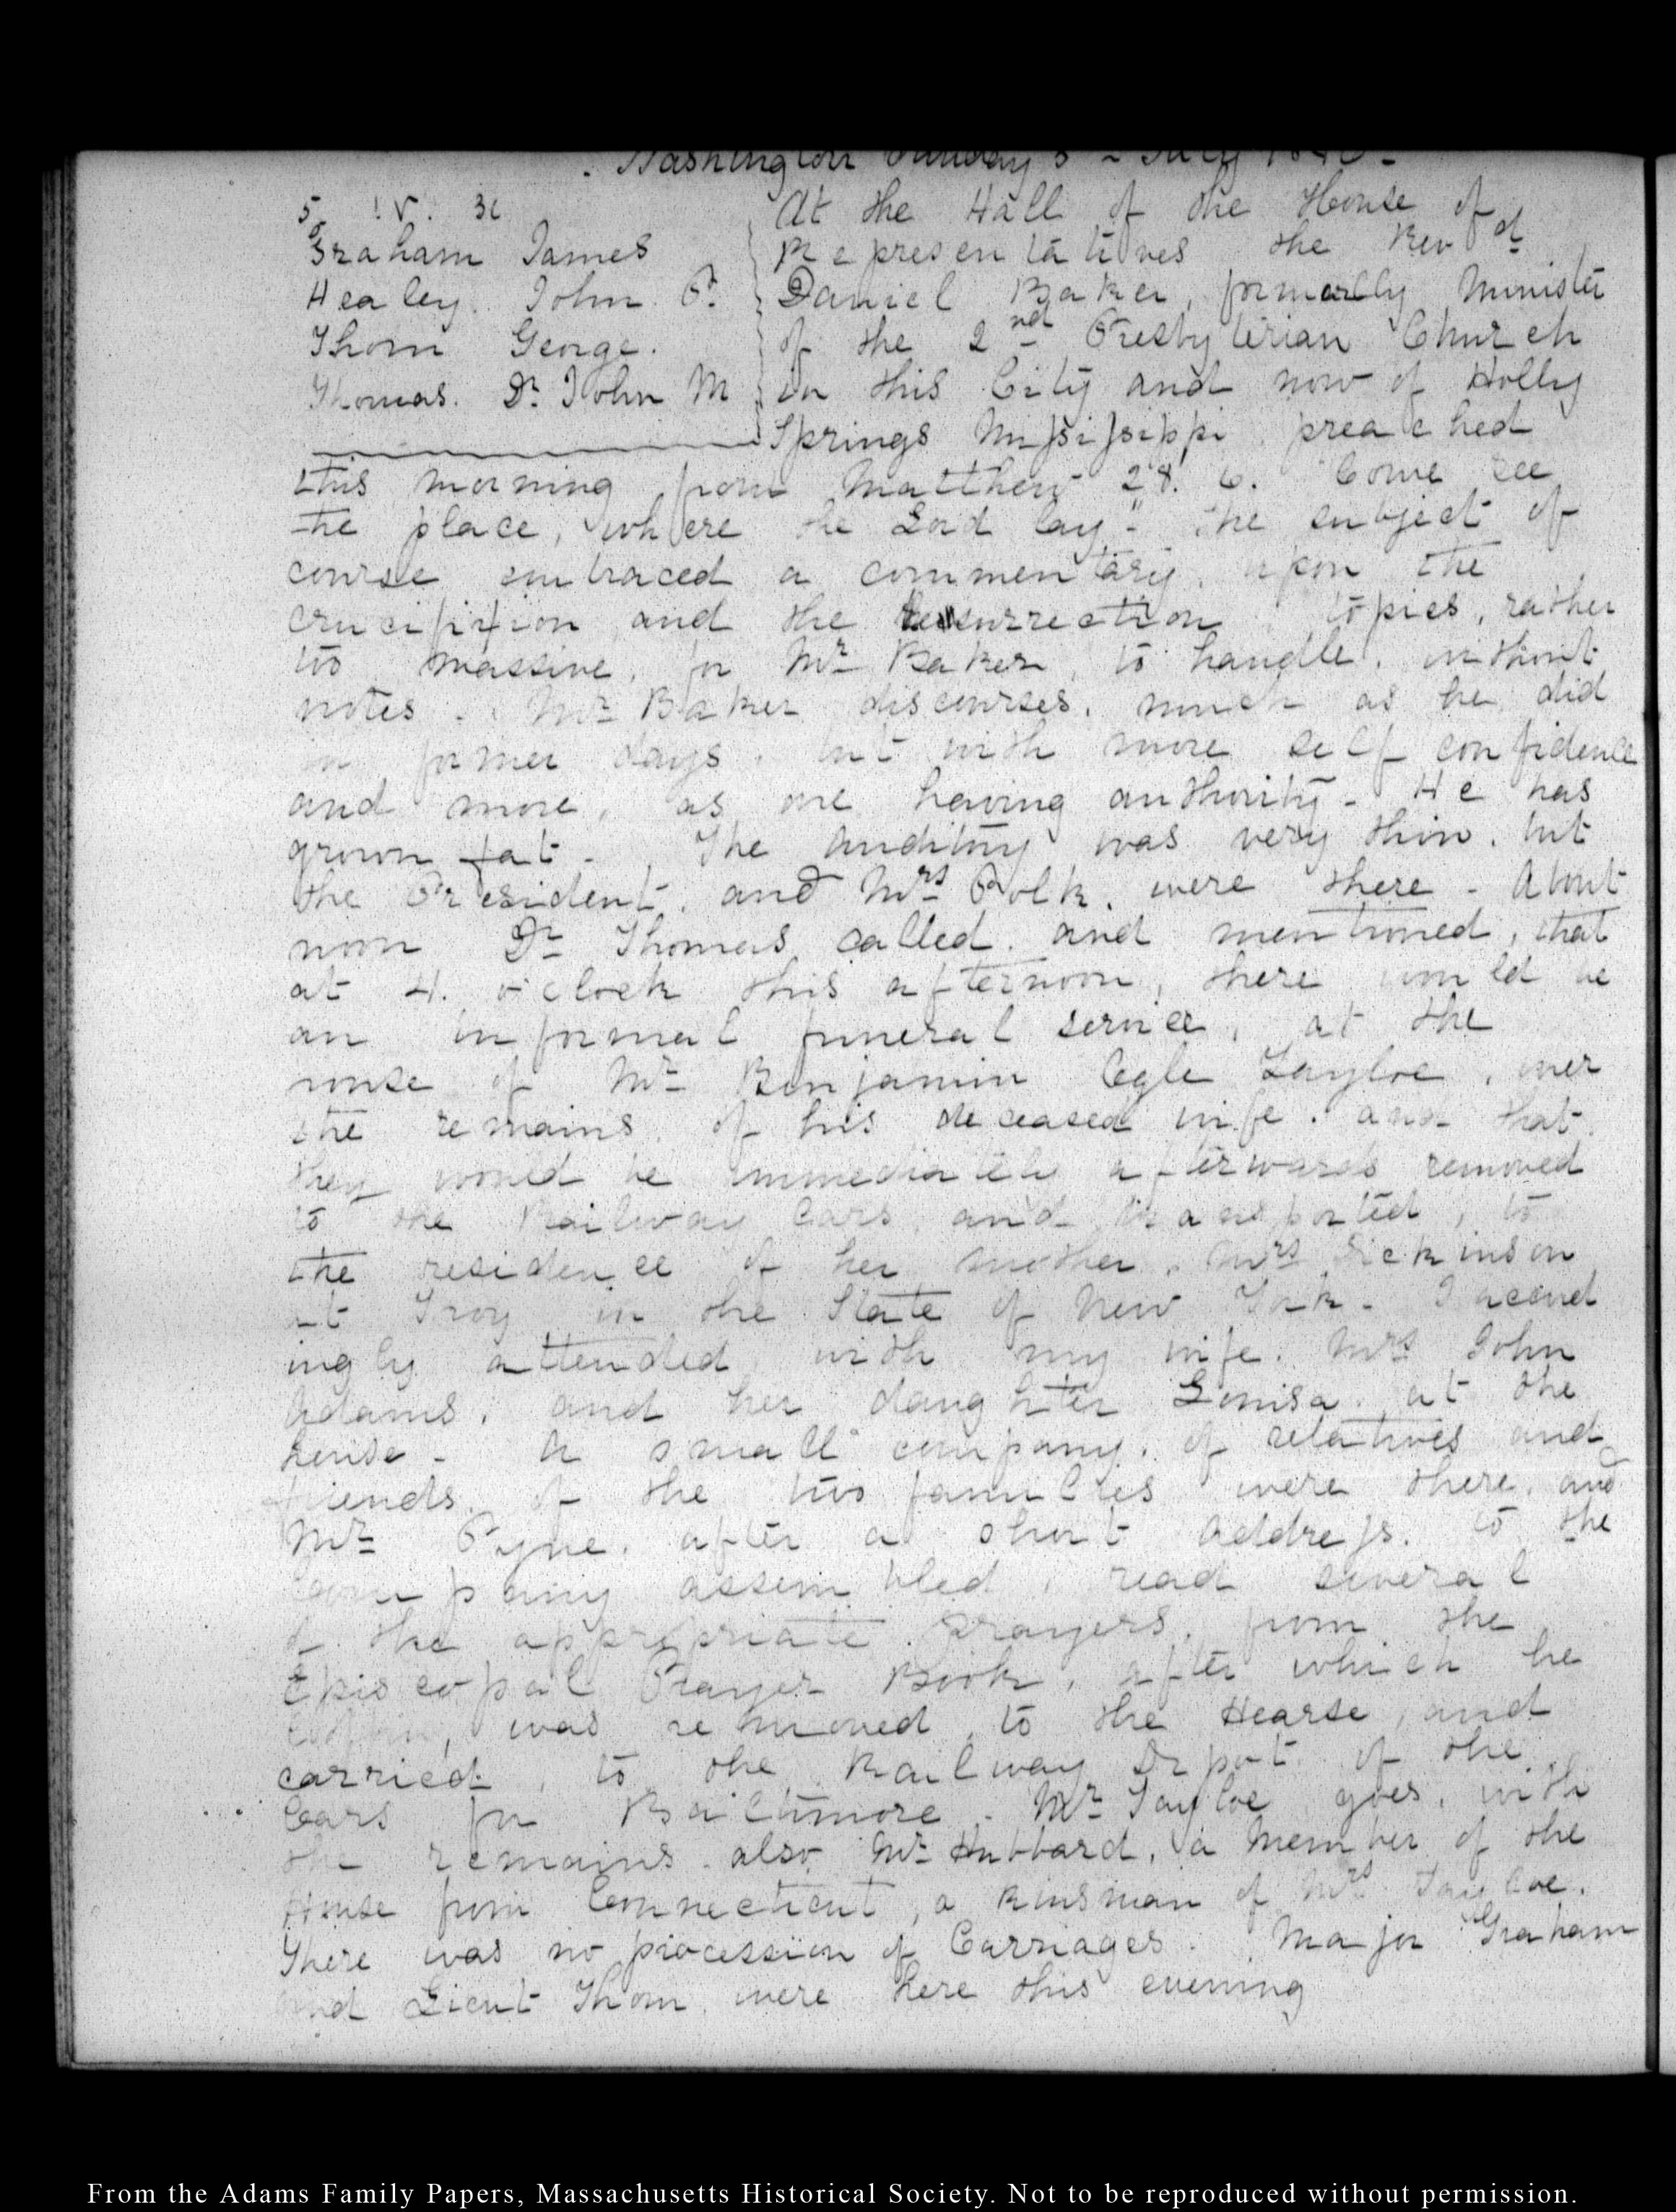 Washington Sunday 5 - July 1846-
5. IV. 30
Graham James
Healey. John. P.
Thom George.
Thomas. Dr. John M
At the Hall of the House of
Representatives the Revd
Daniel Baker, formerly Minister
of the 2nd Presbyterian Church
in this City and now of Holly
Springs Missisippi preached
this morning from Matthew 28. 6. Come see
the place, where the Lord lay." The subject of
course embraced a commentary, upon the
crucifixion and the Resurrection topics, rather
too massive, for Mr Baker to handle, without
notes - Mr Baker discourses, much as he did
in former days, but with more self confidence
and more, as one having authority - He has
grown fat - The auditory was very thin, but
the President, and Mrs Polk, were there - About
noon Dr Thomas called, and mentioned, that
at 4. o'clock this afternoon, there would be
an informal funeral service, at the
house of Mr Benjamin Ogle Tayloe, over
the remains of his deceased wife, and that
they would be immediately afterwards removed
to the Railway Cars, and transported, to
the residence of her mother, Mrs Dickinson
at Troy in the State of New York - I accord
ingly attended with my wife, Mrs John
Adams, and her daughter Louisa, at the
house - A small company, of relatives and
friends, of the two families were there, and
Mr Pyne, after a short address, to the
company assembled, read several
of the appropriate prayers, from the
Episcopal Prayer Book, after which the
coffin, was removed, to the Hearse, and
carried, to the Railway Depot of the
Cars for Baltimore - Mr Tayloe goes, with
the remains, also Mr Hubbard, a member of the
House from Connecticut, a kinsman of Mrs Tayloe.
There was no procession of Carriages. Major Graham
and Lieut Thom were here this evening
From the Adams Family Papers, Massachusetts Historical Society. Not to be reproduced without permission.